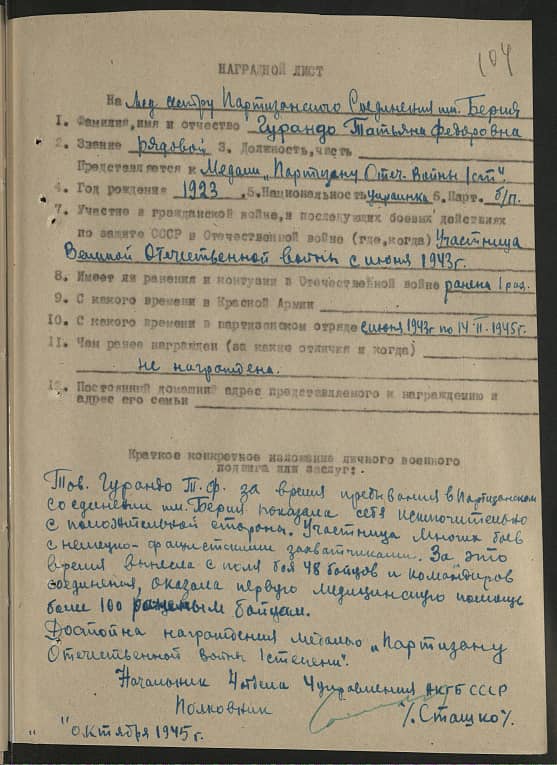 104
НАГРАДНОЙ ЛИСТ
На Мед сестру Партизанского Соединения им. Берия
1. Фамилия, имя и отчество Гурандо Татьяна Федоровна
2. Звание рядовой 3. Должность, часть
Представляется к Медали „Партизану Отеч. Войны I ст".
4. Год рождения 1923, 5. Национальность украинка 6. Парт. б/п.
7. Участие в гражданской войне, и последующих боевых действиях
по защите СССР в Отечественной войне (где, когда) Участница
Великой Отечественной войны с июня 1943 г.
8. Имеет ли ранения и контузии в Отечественной войне ранена 1 раз.
9. С какого времени в Красной Армии
10. С какого времени в партизанском отряде с июня 1943г по 14 II-1945г.
11. Чем ранее награжден (за какие отличия и когда)
не награждена.
12. Постоянный домашний адрес представляемого к награждению и
адрес его семьи
Краткое конкретное изложение личного военного
подвига или заслуг:
Тов. Гурандо Т.Ф. за время пребывания в Партизанском
соединении им. Берия показала себя исключительно
с положительной стороны. Участница многих боев
с немецко-фашистскими захватчиками. За это
время вынесла с поля боя 48 бойцов и командиров
соединения, оказала первую медицинскую помощь
более 100 раненым бойцам.
Достойна награждения медалью „Партизану
Отечественной войны I степени".
Начальник 4 отдела 4 управления НКГБ СССР
Полковник /Сташко/.
" " октября 1945 г.